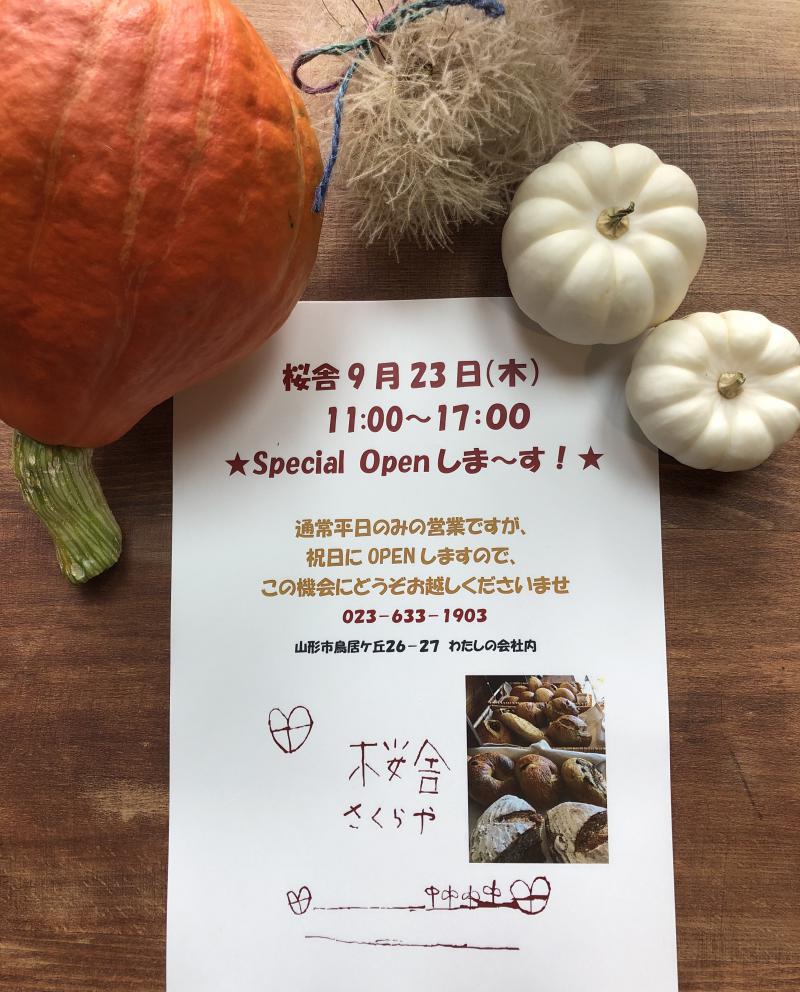 桜舎9月23日(木)
11:00～17:00
★Special Openしま～す！★
通常平日のみの営業ですが、
祝日にOPENしますので、
この機会にどうぞお越しくださいませ
023-633-1903
山形市鳥居ケ丘26-27 わたしの会社内
桜舎
さくらや